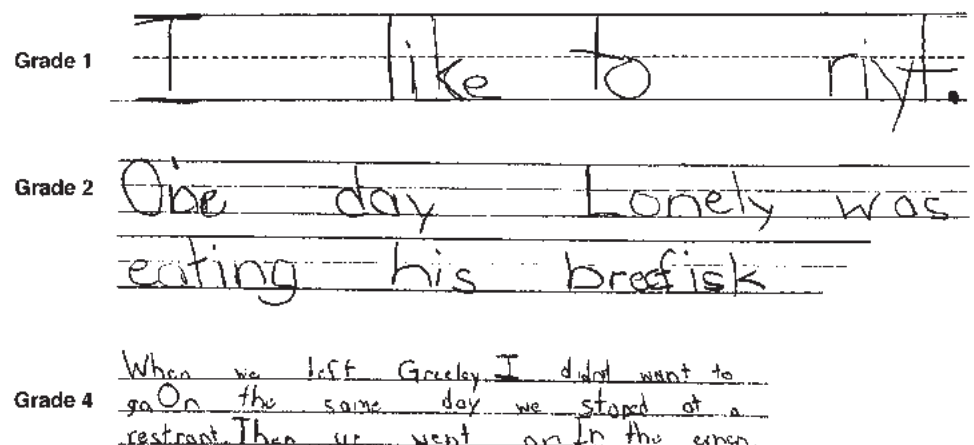 Grade 1 I like to riyt.
Grade 2 One day Lonely was
eating his brecfisk
When we left Greeley I didnt want to
Grade 4 go On the same day we stoped at a
restrant. Then we went on In the